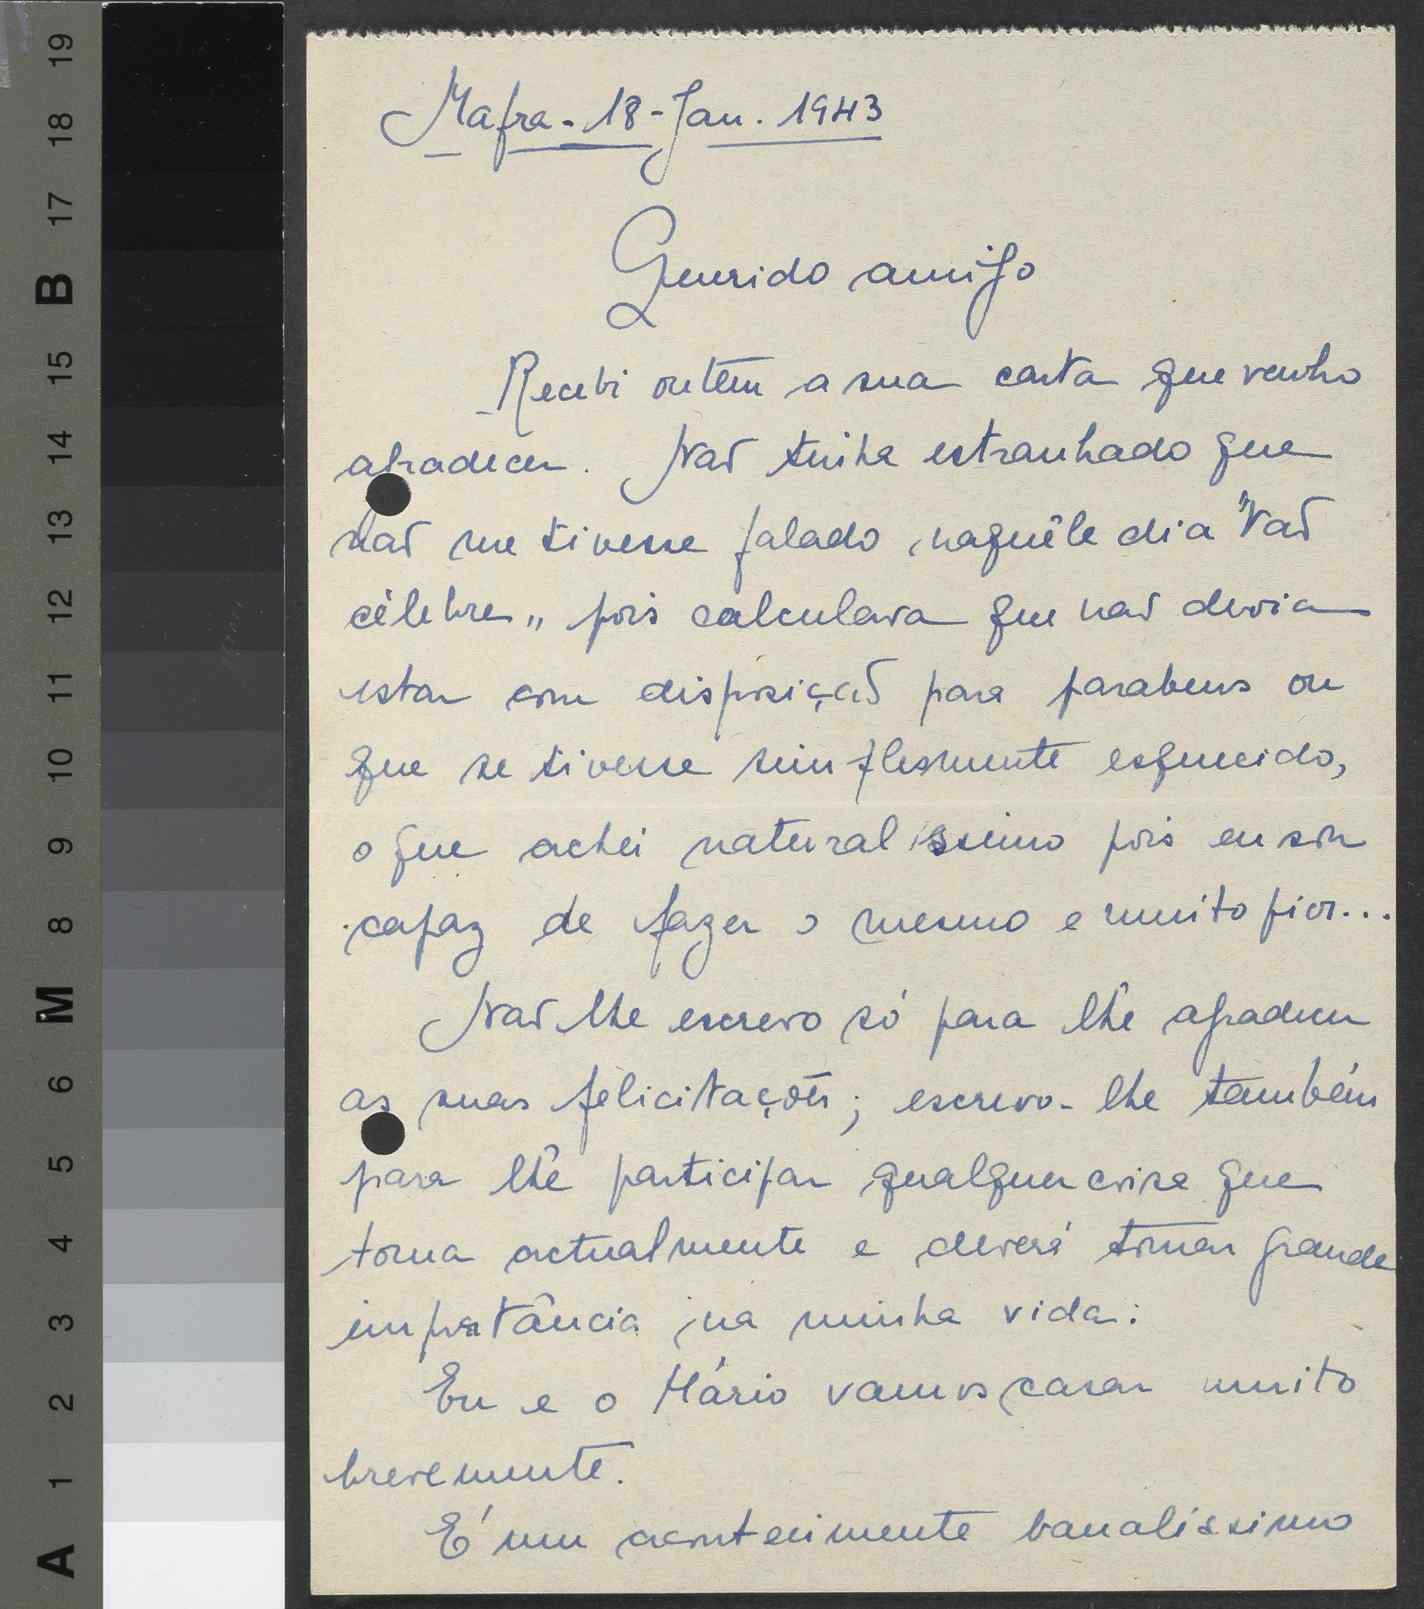 Mafra - 18 - Jan. 1943
Querido amigo
Recebi ontem a sua carta que venho
agradecer. Não tinha estranhado que
não me tivesse falado, naquêle dia "tão
célebre„ pois calculava que não devia
estar com disposição para parabens ou
que se tivesse simplesmente esquecido,
o que achei naturalissimo pois eu sou
capaz de fazer o mesmo e muito pior...
Não lhe escrevo só para lhe agradecer
as suas felicitações; escrevo-lhe também
para lhe participar qualquer coisa que
toma actualmente e deverá tomar grande
importância na minha vida:
Eu e o Mário vamos casar muito
brevemente.
É um acontecimente banalissimo
19
18
17
B
15
14
13
12
11
10
9
8
M
6
5
4
3
2
1
A